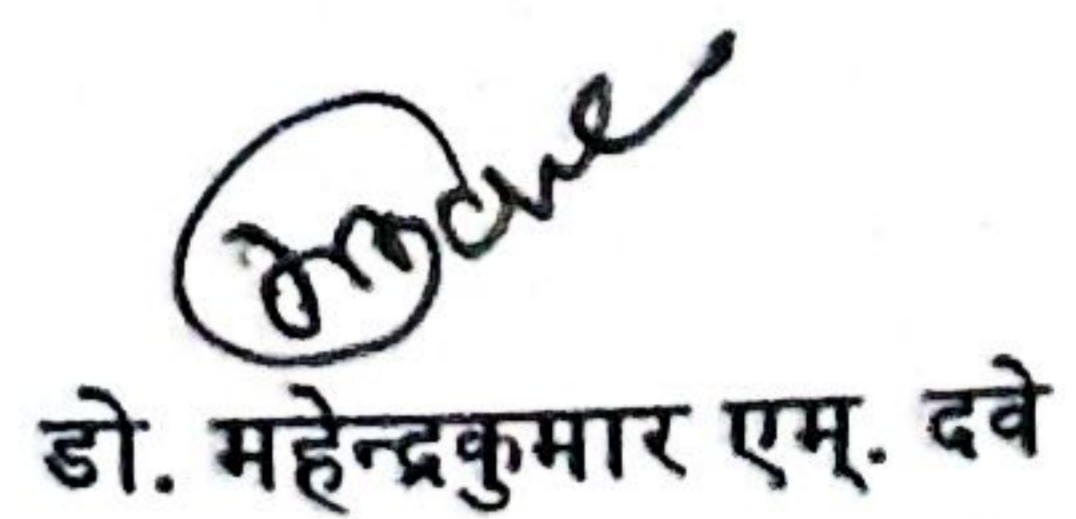 डो. महेन्द्रकुमार एम्. दवे